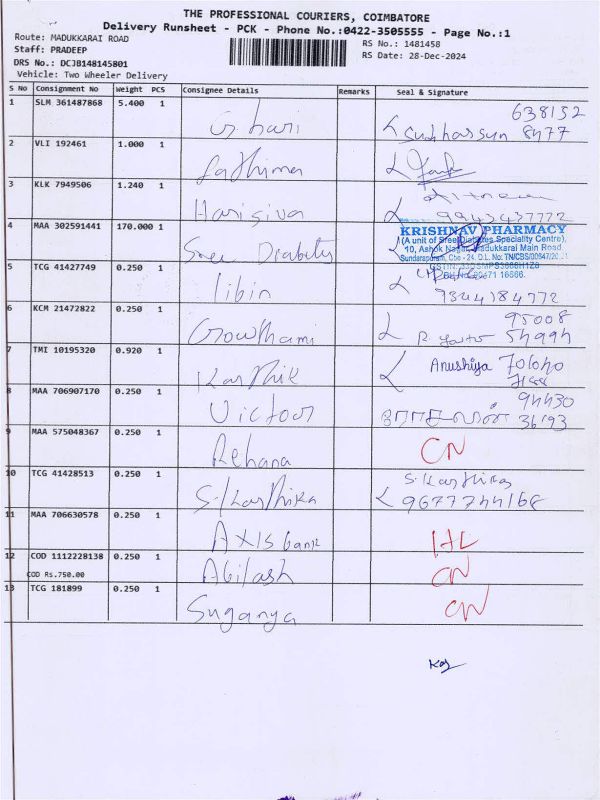 THE PROFESSIONAL COURIERS, COIMBATORE
Delivery Runsheet - PCK - Phone No.:0422-3505555 - Page No.:1
Route: MADUKKARAI ROAD
RS No.: 1481458
Staff: PRADEEP
RS Date: 28-Dec-2024
DRS No.: DCJB148145801
Vehicle: Two Wheeler Delivery
S No Consignment No Weight PCS Consignee Details Remarks Seal & Signature
1 SLM 361487868 5.400 1 G. hari 638152
8477
2 VLI 192461 1.000 1 Fathima
3 KLK 7949506 1.240 1 Harisiva
9943437772
4 MAA 302591441 170.000 1 Sree Diabetes
KRISHNAV PHARMACY
(A unit of Sree Diabetes Speciality Centre),
10, Ashok Nagar, Madukkarai Main Road
Sundarapuram, Cbe - 24.
5 TCG 41427749 0.250 1 libin
9344184772
6 KCM 21472822 0.250 1 Gowthami 95008
54994
7 TMI 10195320 0.920 1 Karthik Anushiya 701040
7188
8 MAA 706907170 0.250 1 Victoor 94430
36193
9 MAA 575048367 0.250 1 Rehana CN
10 TCG 41428513 0.250 1 S. Karthika S. Karthika
9677744168
11 MAA 706630578 0.250 1 AXIS bank
12 COD 1112228138 0.250 1 Abilash CN
COD Rs.750.00
13 TCG 181899 0.250 1 Suganya CN